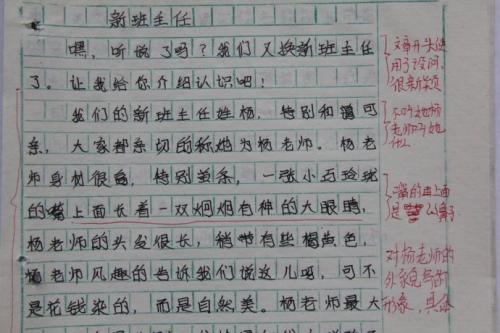 新班主任
嘿，听说了吗？我们又换新班主任
了。让我给你介绍认识吧！
我们的新班主任姓杨，特别和蔼可
亲，大家都亲切的称她为杨老师。杨老
师身材很高，特别苗条。一张小巧玲珑
的嘴上面长着一双炯炯有神的大眼睛，
杨老师的头发很长，稍带有些褐黄色，
杨老师风趣的告诉我们说这儿呀，可不
是花钱染的，而是自然美。杨老师最大
文章开头使
用了设问，
很新颖
不叫她杨
老师叫她
什么
嘴的由上面
是
对杨老师的
外貌
形象，具体